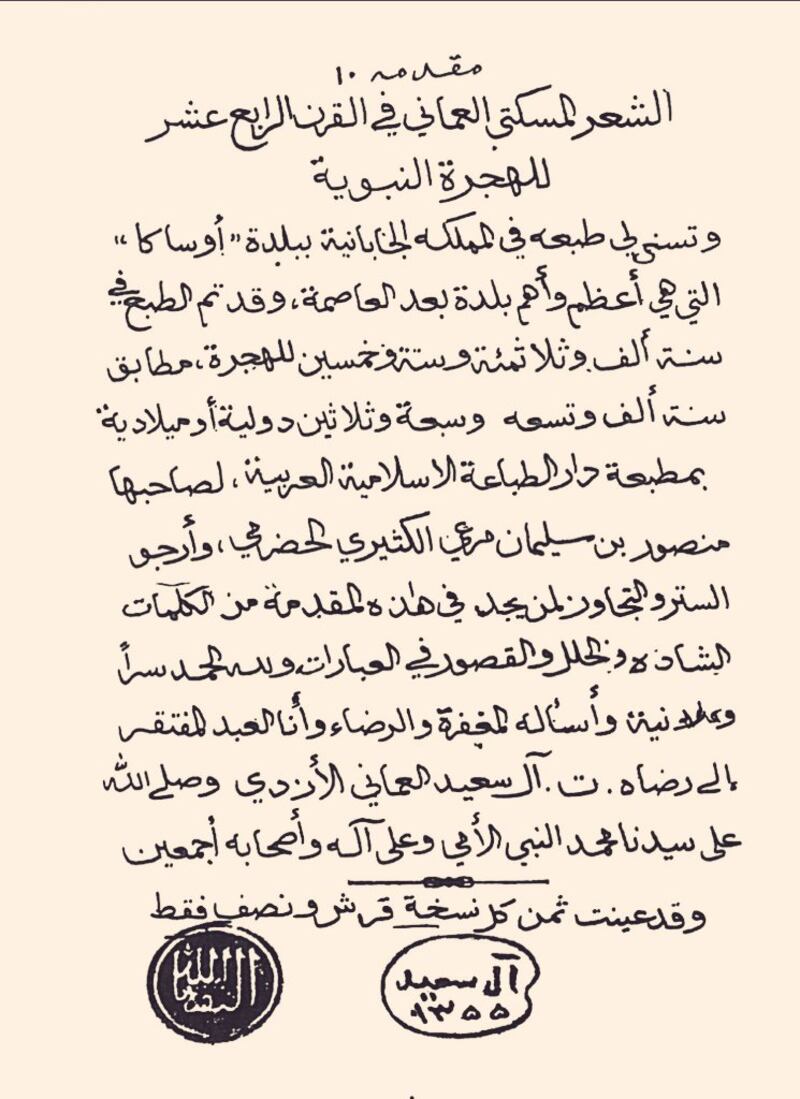 مقدمه ١٠
الشعر المسكتي العماني في القرن الرابع عشر
للهجرة النبوية
وتسنى لي طبعه في المملكه الجابانية ببلدة "أوساكا"
التي هي أعظم وأهم بلدة بعد العاصمة، وقد تم الطبع في
سنة ألف وثلاثمئة وستة وخمسين للهجرة، مطابق
سنة ألف وتسعه وسبعة وثلاثين دولية أو ميلادية
بمطبعة دار الطباعة الاسلامية العربية، لصاحبها
منصور بن سليمان مرعي الكثيري الحضرمي، وأرجو
الستر والتجاوز لمن يجد في هذه المقدمة من الكلمات
الشاذه والخلل والقصور في العبارات ولله الحمد سراً
وعلانية وأسأله المغفرة والرضاء وأنا العبد المفتقر
إلى رضاه. ت. آل سعيد العماني الأزدي وصلى الله
على سيدنا محمد النبي الأمي وعلى آله وأصحابه أجمعين
وقد عينت ثمن كل نسخة قرش ونصف فقط
آل سعيد
١٣٥٥